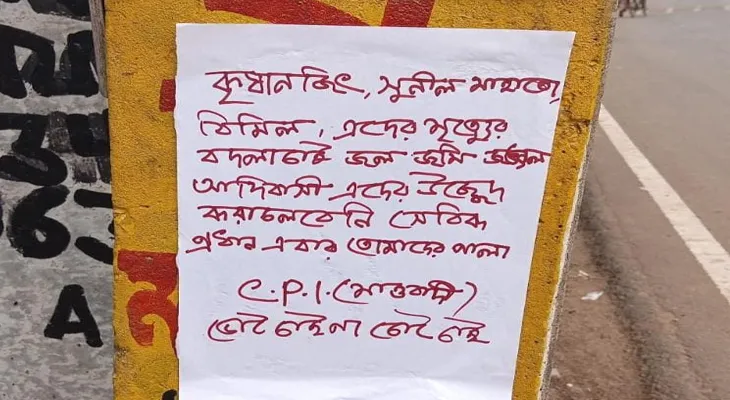 কৃষানজিৎ, সুনীল মাহাতো,
বিমিল, এদের মৃত্যুর
বদলা চাই জল জমি জঙ্গল
আদিবাসী এদের উচ্ছেদ
করা চলবেনি সেবিক
প্রধান এবার তোমাদের পালা
C.P.I. (মাওবাদী)
ভোট চাই না ভোট চাই
A